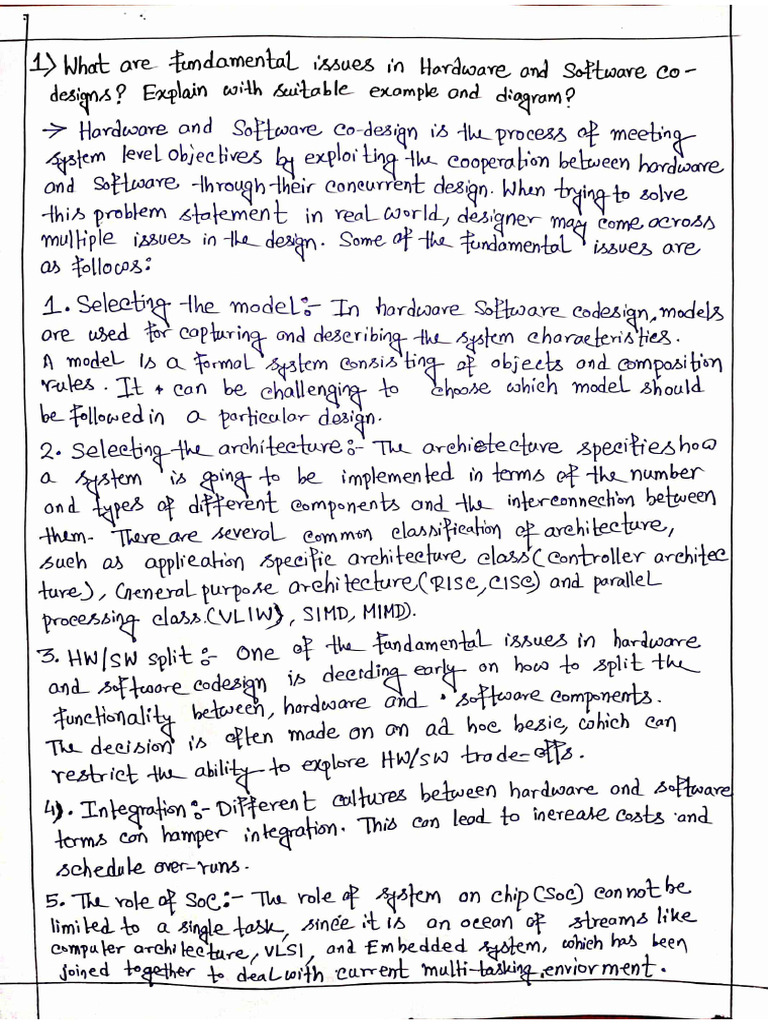 1) What are fundamental issues in Hardware and Software co-
designs? Explain with suitable example and diagram?
→ Hardware and Software co-design is the process of meeting
system level objectives by exploiting the cooperation between hardware
and Software through their concurrent design. When trying to solve
this problem statement in real world, designer may come across
multiple issues in the design. Some of the fundamental issues are
as follows:
1. Selecting the model:- In hardware Software codesign, models
are used for capturing and describing the system characteristics.
A model is a formal system consisting of objects and composition
rules. It can be challenging to choose which model should
be followed in a particular design.
2. Selecting the architecture:- The architecture specifies how
a system is going to be implemented in terms of the number
and types of different components and the interconnection between
them. There are several common classification of architecture,
such as application specific architecture class (Controller architec
ture), General purpose architecture (RISC, CISC) and parallel
processing class. (VLIW), SIMD, MIMD).
3. HW/SW split:- One of the fundamental issues in hardware
and software codesign is deciding early on how to split the
functionality between, hardware and software components.
The decision is often made on an ad hoc besic, which can
restrict the ability to explore HW/SW trade-offs.
4). Integration:- Different cultures between hardware and software
terms can hamper integration. This can lead to increase costs and
schedule over-runs.
5. The role of SoC:- The role of system on chip (SoC) cannot be
limited to a single task, since it is an ocean of streams like
computer architecture, VLSI, and Embedded system, which has been
joined together to deal with current multi-tasking enviorment.